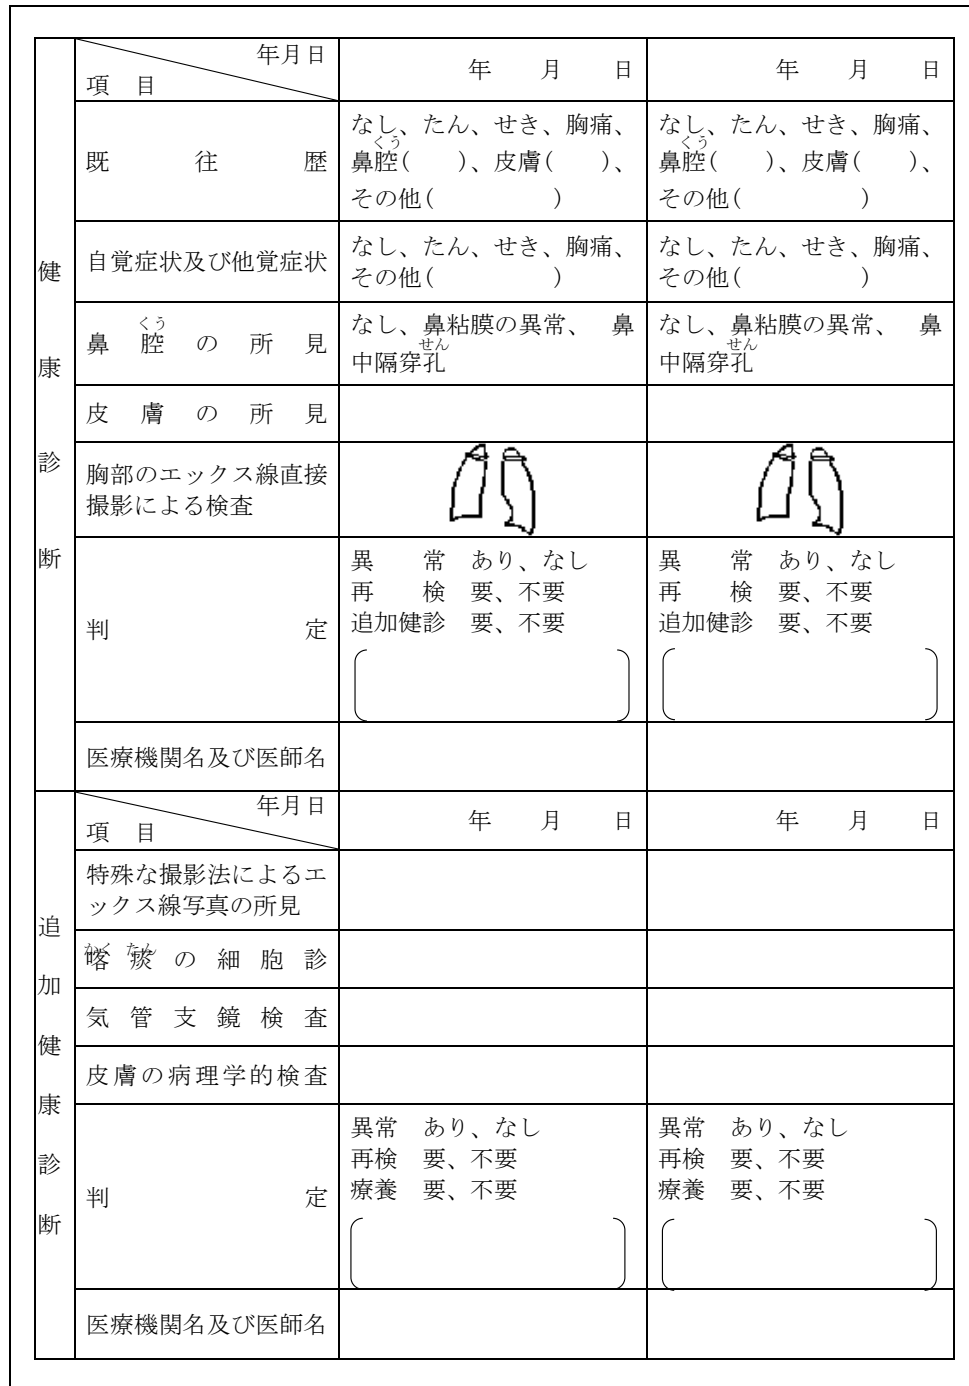 健康診断
年月日
項 目
年 月 日
年 月 日
既往歴
なし、たん、せき、胸痛、
鼻腔( )、皮膚( )、
くう
その他( )
なし、たん、せき、胸痛、
鼻腔( )、皮膚( )、
くう
その他( )
自覚症状及び他覚症状
なし、たん、せき、胸痛、
その他( )
なし、たん、せき、胸痛、
その他( )
くう
鼻腔の所見
なし、鼻粘膜の異常、 鼻
せん
中隔穿孔
なし、鼻粘膜の異常、 鼻
せん
中隔穿孔
皮膚の所見
胸部のエックス線直接
撮影による検査
判定
異 常 あり、なし
再 検 要、不要
追加健診 要、不要
異 常 あり、なし
再 検 要、不要
追加健診 要、不要
医療機関名及び医師名
追加健康診断
年月日
項 目
年 月 日
年 月 日
特殊な撮影法によるエ
ックス線写真の所見
かくたん
喀痰の細胞診
気管支鏡検査
皮膚の病理学的検査
判定
異常 あり、なし
再検 要、不要
療養 要、不要
異常 あり、なし
再検 要、不要
療養 要、不要
医療機関名及び医師名